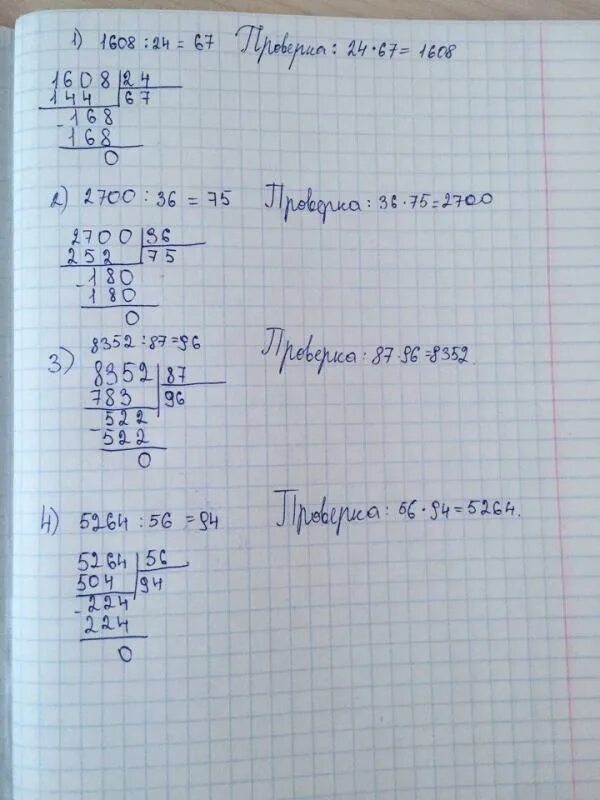 1) 1608 : 24 = 67 Проверка : 24 · 67 = 1608
1608 24
144 67
- 168
168
0
2) 2700 : 36 = 75 Проверка : 36 · 75 = 2700
2700 36
252 75
- 180
180
0
3) 8352 : 87 = 96 Проверка : 87 96 = 8352.
8352 87
783 96
- 522
522
0
4) 5264 : 56 = 94 Проверка : 56 · 94 = 5264.
5264 56
504 94
- 224
224
0